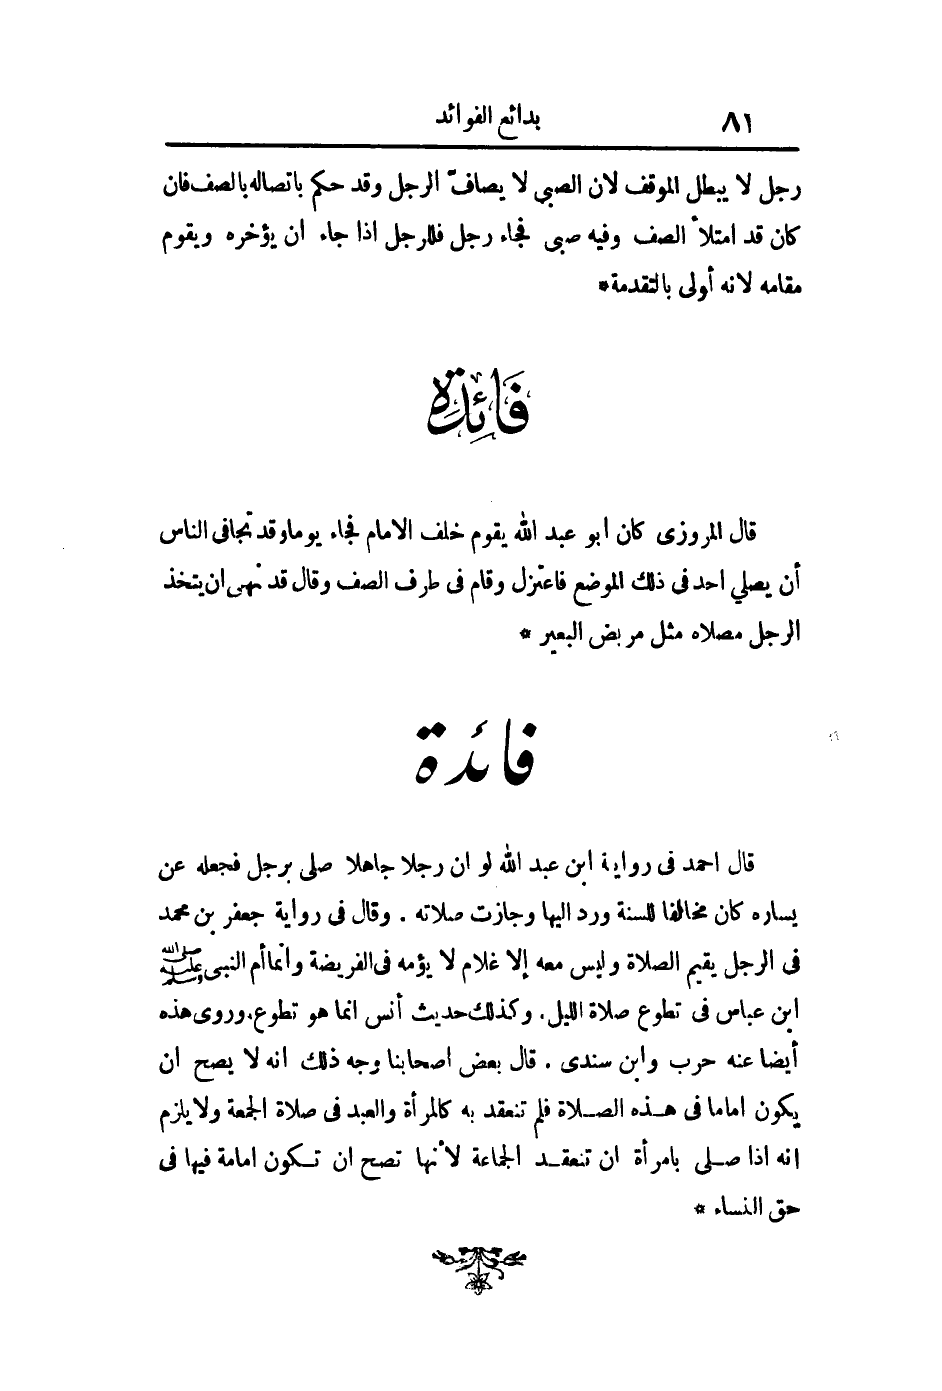 ٨١ بدائع الفوائد
رجل لا يبطل الموقف لان الصبي لا يصافّ الرجل وقد حكم باتصاله بالصف فان
كان قد امتلأ الصف وفيه صبى فجاء رجل فللرجل اذا جاء ان يؤخره ويقوم
مقامه لانه أولى بالتقدمة*
فَائِدة
قال المروزى كان أبو عبد الله يقوم خلف الامام فجاء يوما وقد تجافى الناس
أن يصلي احد فى ذلك الموضع فاعتزل وقام فى طرف الصف وقال قد نهى ان يتخذ
الرجل مصلاه مثل مربض البعير *
فائدة
قال احمد فى رواية ابن عبد الله لو ان رجلا جاهلا صلى برجل فجعله عن
يساره كان مخالفا للسنة ورد اليها وجازت صلاته . وقال فى رواية جعفر بن محمد
فى الرجل يقيم الصلاة وليس معه إلا غلام لا يؤمه فى الفريضة وانما أم النبى ﷺ
ابن عباس فى تطوع صلاة الليل. وكذلك حديث أنس انما هو تطوع. وروى هذه
أيضا عنه حرب وابن سندى . قال بعض اصحابنا وجه ذلك انه لا يصح ان
يكون اماما فى هـذه الصـلاة فلم تنعقد به كالمرأة والعبد فى صلاة الجمعة ولا يلزم
انه اذا صـلى بامرأة ان تنعقـد الجماعة لأنها تصح ان تـكون امامة فيها فى
حق النساء *